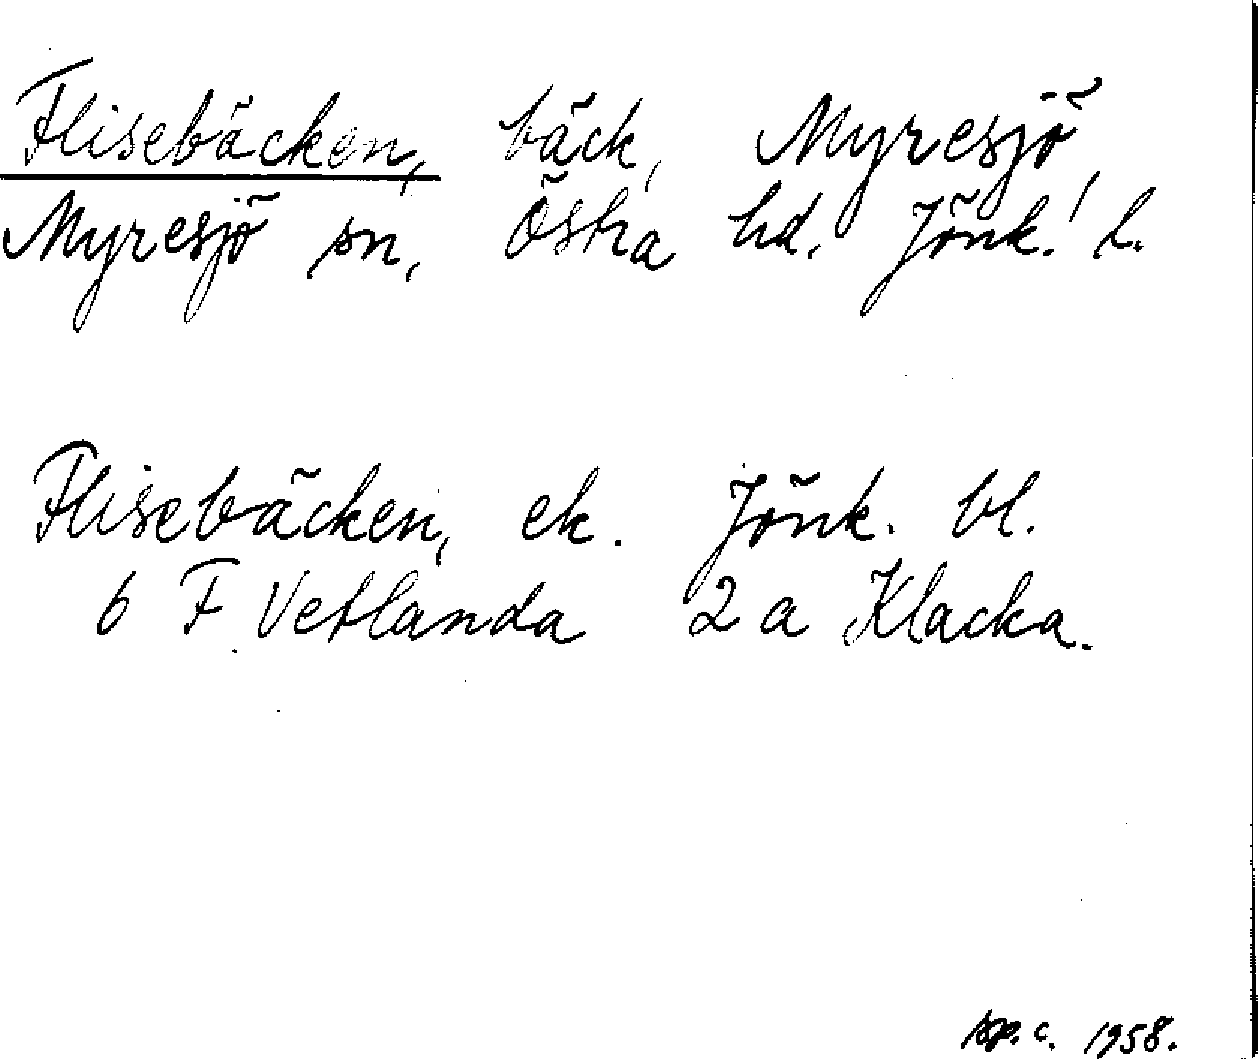 Flisebäcken, bäck, Myresjö,
Myresjö sn, Östra hd. Jönk. l.
Flisebäcken, ek. Jönk. bl.
6 F Vetlanda 2 a Klacka.
c. 1958.